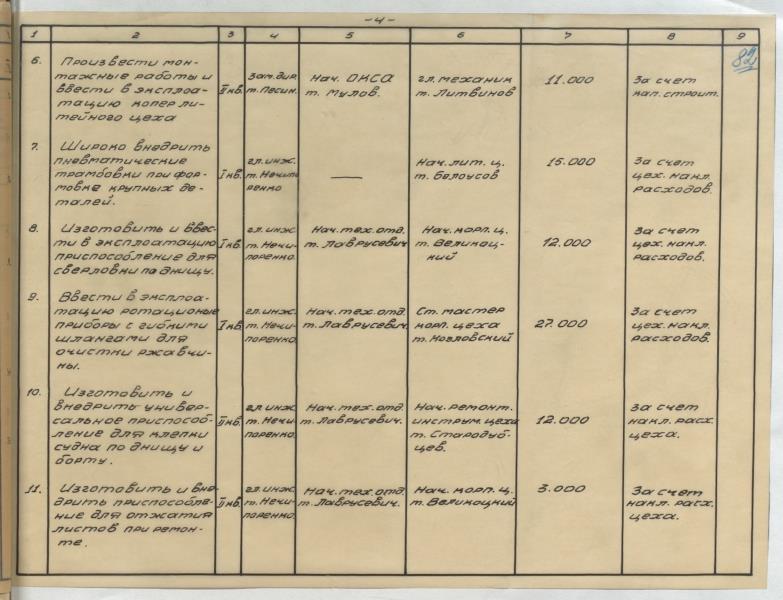 -4-
1 2 3 4 5 6 7 8 9
82
6. Произвести мон-
тажные работы и
ввести в эксплоа-
тацию копер ли-
тейного цеха
II кв.
Зам. дир.
т. Песин.
Нач. ОКСА
т. Мулов.
гл. механик
т. Литвинов
11.000
За счет
кап. строит.
7. Широко внедрить
пневматические
трамбовки при фор-
мовке крупных де-
талей.
I кв.
гл. инж.
т. Нечипо
ренко
—
Нач. лит. ц.
т. Белоусов
15.000
За счет
цех. накл.
расходов.
8. Изготовить и ввес-
ти в эксплоатацию
приспособление для
сверловки по днищу.
I кв.
гл. инж
т. Нечи-
поренко.
Нач. тех. отд.
т. Лаврусевич
Нач. корп. ц.
т. Великоц-
кий
12.000
За счет
цех. накл.
расходов.
9. Ввести в эксплоа-
тацию ротационые
приборы с гибкими
шлангами для
очистки ржавчи-
ны.
I кв.
гл. инж.
т. Нечи-
поренко.
Нач. тех. отд.
т. Лаврусевич.
Ст. мастер
корп. цеха
т. Козловский
27.000
За счет
цех. накл.
расходов.
10. Изготовить и
внедрить универ-
сальное приспособ-
ление для клепки
судна по днищу и
борту.
II кв.
гл. инж.
т. Нечи-
поренко.
Нач. тех. отд.
т. Лаврусевич.
Нач. ремонт.
инструм. цеха
т. Стародуб-
цев.
12.000
За счет
накл. расх.
цеха.
11. Изготовить и вне-
дрить приспособле-
ние для отжатия
листов при ремон-
те.
II кв.
гл. инж.
т. Нечи-
поренко.
Нач. тех. отд.
т. Лаврусевич.
Нач. корп. ц.
т. Великоцкий
3.000
За счет
накл. расх.
цеха.